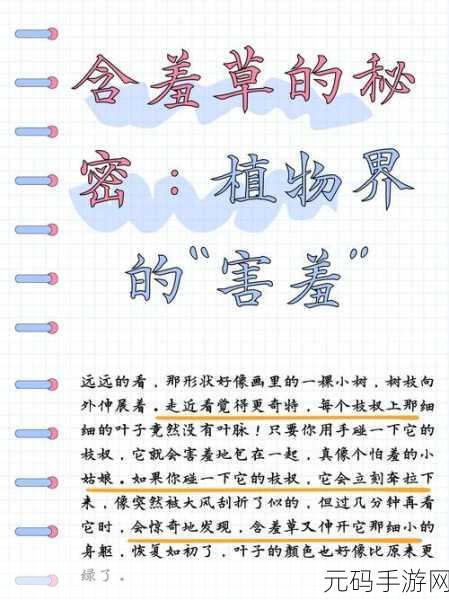 含羞草的秘
密：植物界
的“害羞”
远远的看，那形状好像画里的一棵小树，树枝向
外伸展着。走近看觉得更奇特，每个枝杈上那细
细的叶子竟然没有叶脉！只要你用手碰一下它的
枝杈，它就会害羞地包在一起，真像个怕羞的小
姑娘。如果你碰一下它的枝杈，它会立刻奔拉下
来，像突然被大风刮折了似的，但过几分钟再看
它时，会惊奇地发现，含羞草又伸开它那细小的
身躯，恢复如初了，叶子的颜色也好像比原来更
绿了。
元码手游网